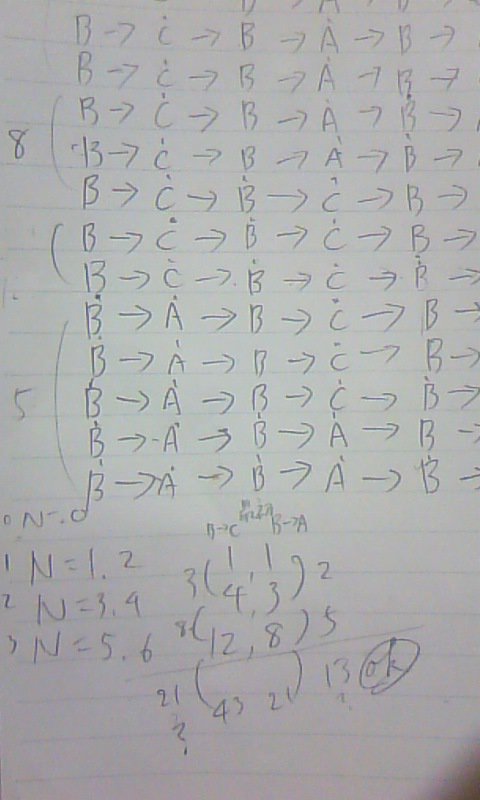 B → Ċ → B → Ȧ → B →
B → Ċ → B → Ȧ → B →
B → Ċ → B → Ȧ → Ḃ →
8 B → Ċ → B → Ȧ → Ḃ →
B → Ċ → Ḃ → Ċ → B →
B → Ċ → Ḃ → Ċ → B →
B → Ċ → Ḃ → Ċ → Ḃ →
Ḃ → Ȧ → B → Ċ → B →
Ḃ → Ȧ → B → Ċ → B →
5 Ḃ → Ȧ → B → Ċ → Ḃ →
Ḃ → Ȧ → Ḃ → Ȧ → B →
Ḃ → Ȧ → Ḃ → Ȧ → Ḃ →
0 N=0
B→C B→A
1 N=1.2 1, 1
3( 4, 3 ) 2
2 N=3.4
3 N=5.6 8( 12, 8 ) 5
21 ( 43 21 ) 13 ok
? ?